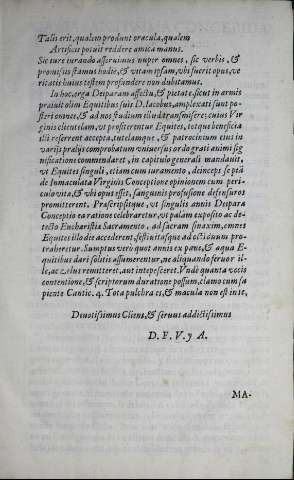 Talis erit, qualem produnt oracula, qualem
Artificis potuit reddere amica manus.
Sic iure iurando asseruimus nuper omnes, sic verbis, &
promissis stamus hodie, & vitam ipsam, vbi fuerit opus, ve
ritatis huius testem profundere non dubitamus.
In hoc, erga Deiparam affectu, & pietate, sicut in armis
praiuit olim Equitibus suis D. Iacobus, amplexati sunt po-
steri omnes, & ad nos studium illud transmisere; cuius Vir
ginis clientelam, vt profiterentur Equites, totque beneficia
illi referent accepta, tutelamque, & patrocinium eius tã
varijs prælijs comprobatum vniuersus ordo grati animi sig
nificatione commendaret, in capitulo generali mandauit,
vt Equites singuli, etiam cum iuramento, deinceps se piã
de Inmaculata Virginis Conceptione opinionem cum peri-
culo vitæ, & vbi opus esset, sanguinis profusione defensuros
promitterent. Præscripsitque, vt singulis annis Deiparæ
Conceptio ea ratione celebraretur, vt palàm exposito ac de-
tecto Eucharistiæ Sacramento, ad sacram sinaxim, omnes
Equites illo die accederent, festiuitasque ad octiduum pro-
traheretur. Sumptus verò quot annis ex pane, & aqua E-
quitibus dari solitis assumerentur, ne aliquando feruor il-
le, ac zelus remitteret, aut intepesceret. Vndè quanta vocis
contentione, & scriptorum duratione possum, clamo cum sa
piente Cantic. 4. Tota pulchra es, & macula non est in te,
Deuotissimus Cliens, & seruus addictissimus
D. F. V. y A.
MA-